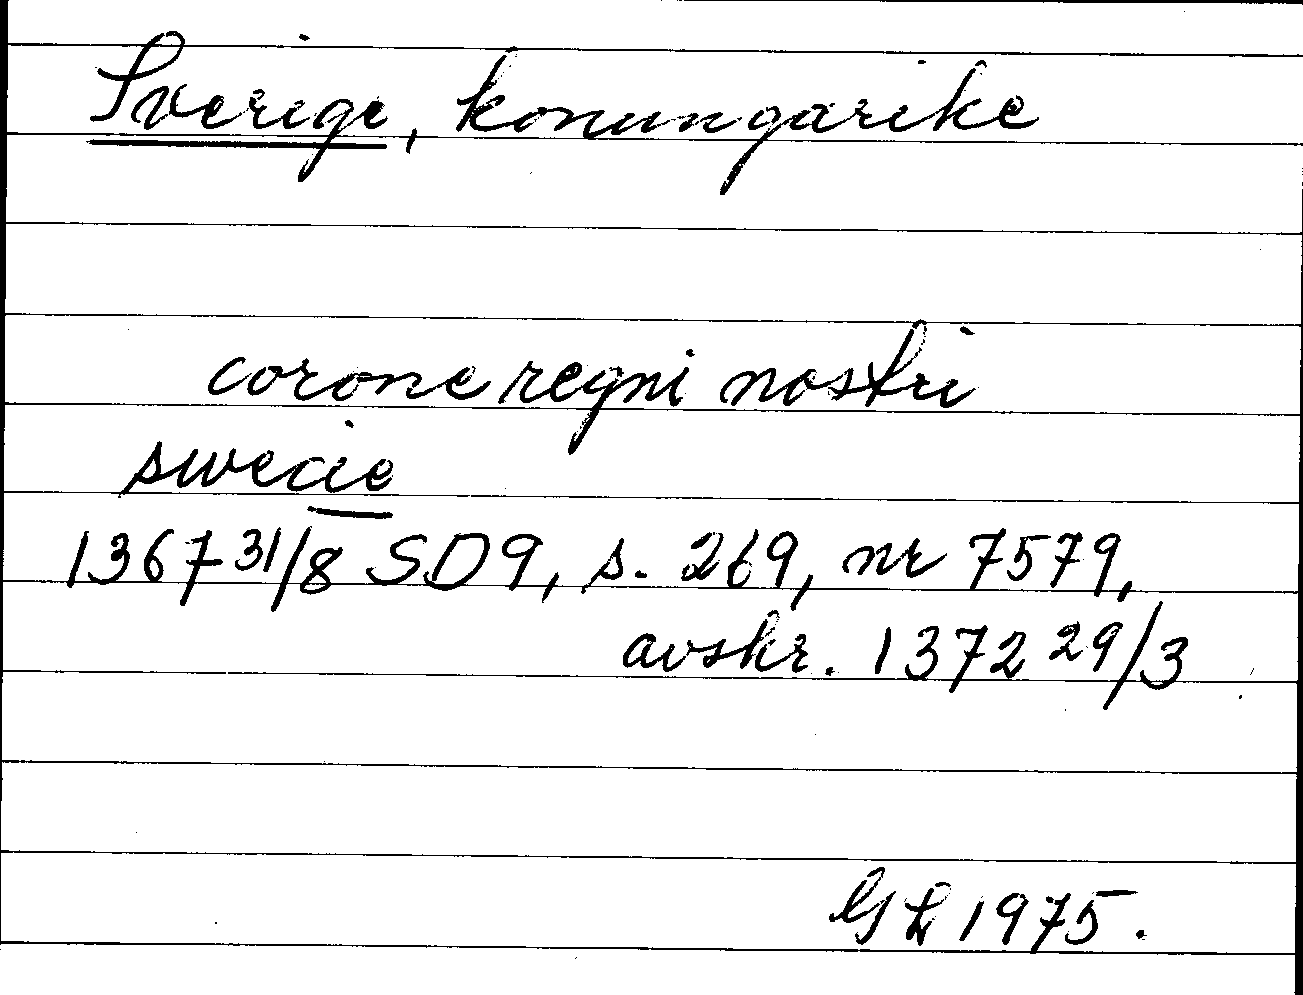 Sverige, konungarike
corone regni nostri
swecie
1367 31/8 SD9, s. 269, nr 7579,
avskr. 1372 29/3
GL 1975.